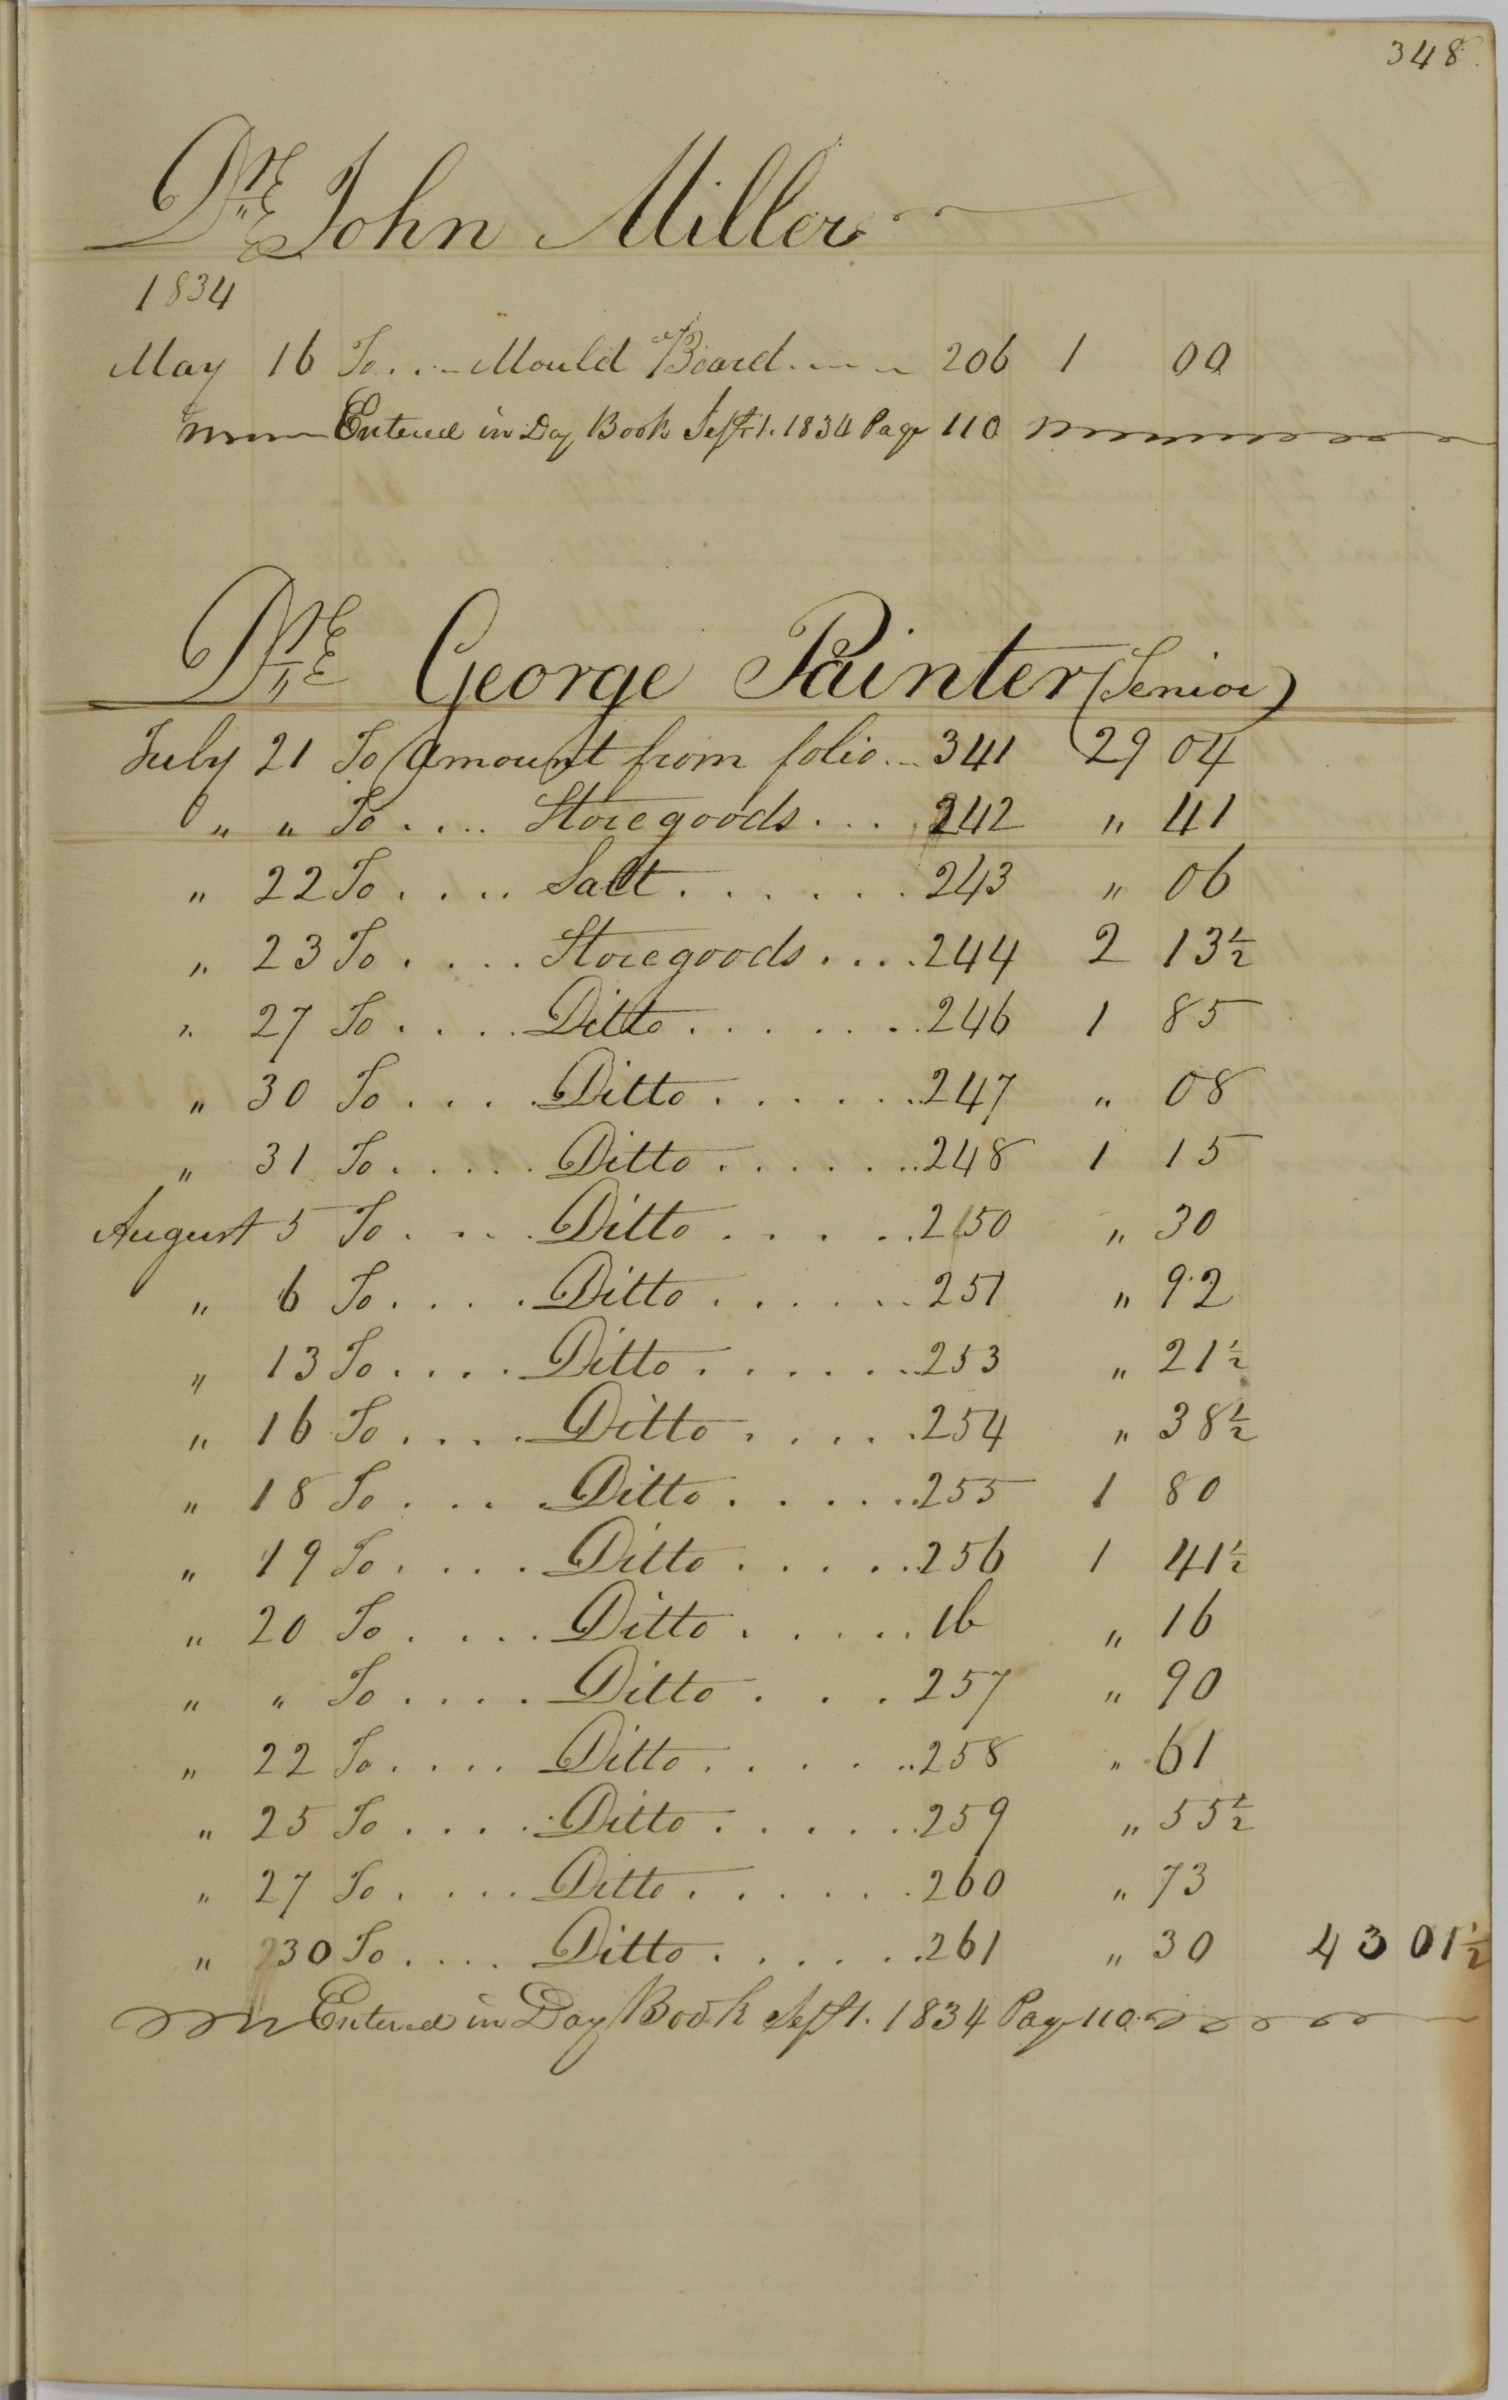 348
Dr John Miller
1834
May 16 To . . . Mould Board . . . 206 1 00
Entered in Day Book Sept 1. 1834 Page 110
Dr George Painter (Senior)
July 21 To amount from folio . . 341 29 04
" " To . . . . Storegoods . . . . 242 " 41
" 22 To . . . . Salt . . . . . . 243 " 06
" 23 To . . . . Storegoods . . . . 244 2 13½
" 27 To . . . . Ditto . . . . . . 246 1 85
" 30 To . . . . Ditto . . . . . . 247 " 08
" 31 To . . . . . Ditto . . . . . . 248 1 15
August 5 To . . . . Ditto . . . . . 250 " 30
" 6 To . . . . Ditto . . . . . . 251 " 92
" 13 To . . . . Ditto . . . . . . 253 " 21½
" 16 To . . . . Ditto . . . . . 254 " 38½
" 18 To . . . . Ditto . . . . . 255 1 80
" 19 To . . . . Ditto . . . . . 256 1 41½
" 20 To . . . . Ditto . . . . . Ib " 16
" " To . . . . Ditto . . . 257 " 90
" 22 To . . . . Ditto . . . . . 258 " 61
" 25 To . . . . Ditto . . . . . 259 " 55½
" 27 To . . . . Ditto . . . . . . 260 " 73
" 30 To . . . . Ditto . . . . . . 261 " 30 43 01½
Entered in Day Book Sept 1. 1834 Page 110